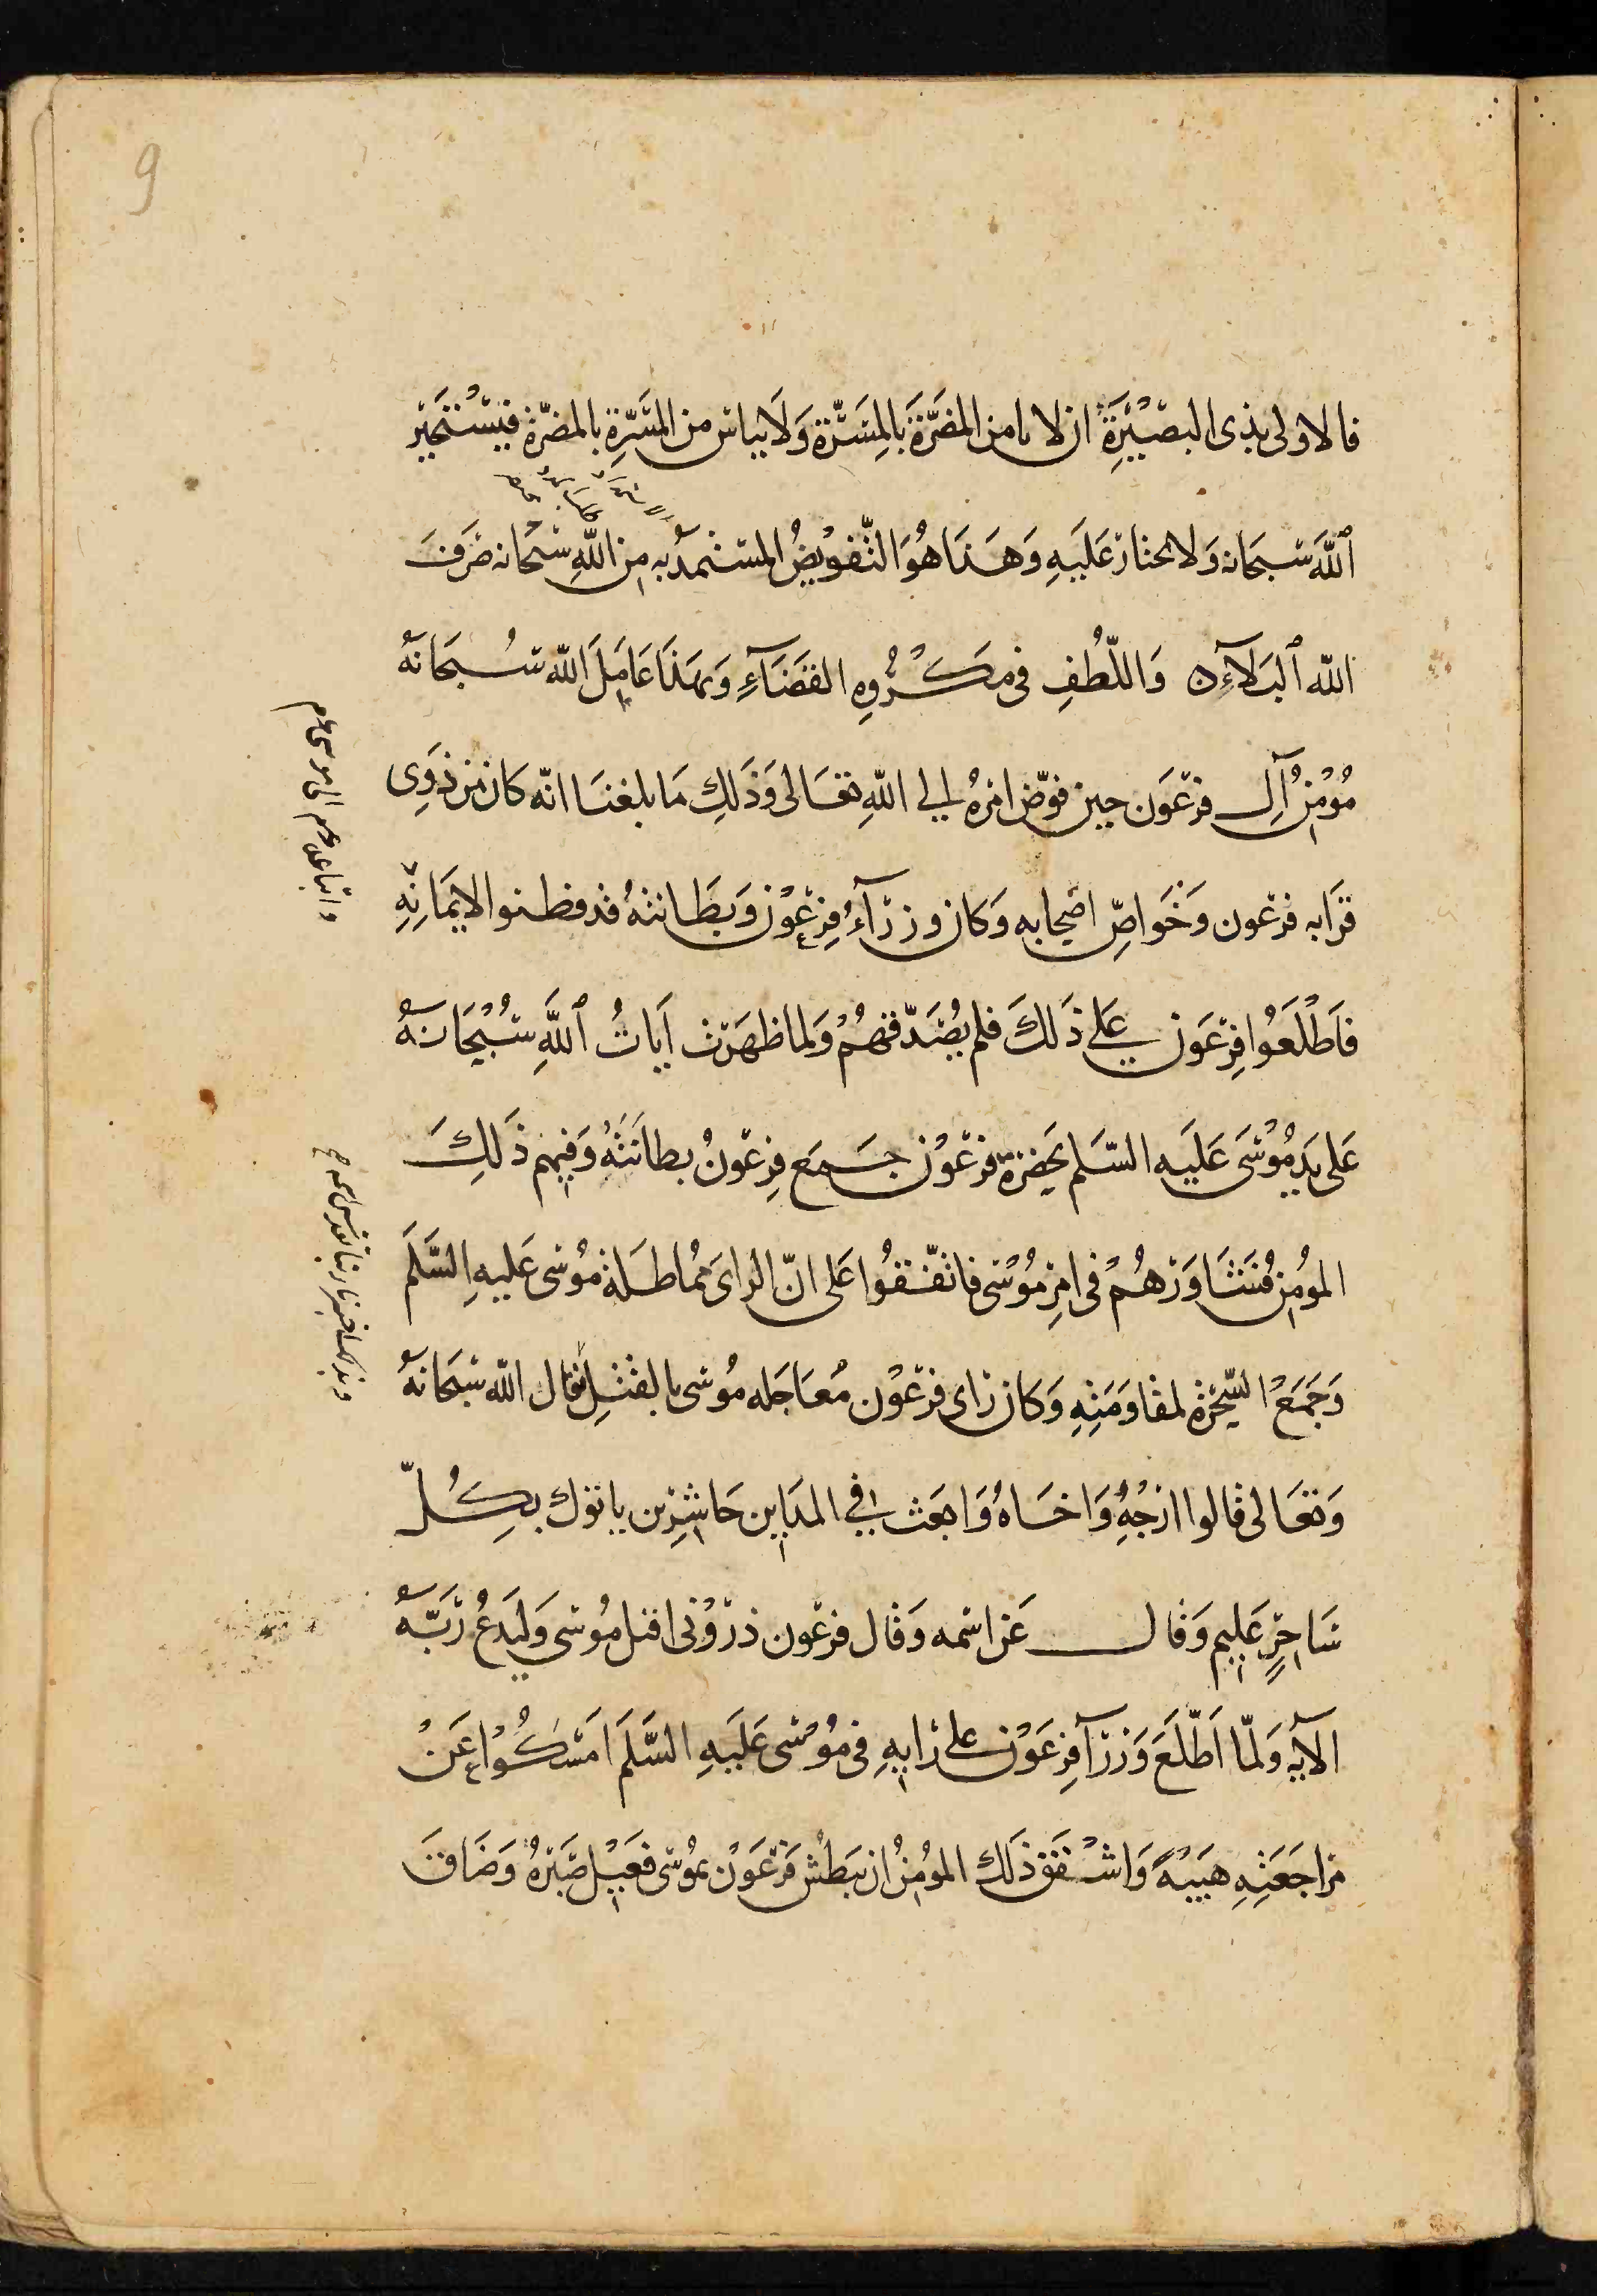 فالاولى بذى البصيرة ان لا يامن المضرة بالمسرة ولا يياس من المسرة بالمضرة فيستخير
الله سبحانه ولا يختار عليه وهذا هو التفويض المستمد به من الله سبحانه صرف
الله البلاء واللطف في مكروه القضاء وبهذا عامل الله سبحانه
مؤمن آل فرعون حين فوض امره الى الله تعالى وذلك ما بلغنا انه كان من ذوى
قرابه فرعون وخواص اصحابه وكان وزراء فرعون وبطانته قد فطنوا لايمانه
فاطلعوا فرعون على ذلك فلم يصدقهم ولما ظهرت آيات الله سبحانه
على يد موسى عليه السلم بحضرة فرعون جمع فرعون بطانته وفيهم ذلك
المؤمن فشاورهم في امر موسى فاتفقوا على ان الراى مماطلة موسى عليه السلم
وجمع السحرة لمقاومته وكان راى فرعون معاجله موسى بالقتل فقال الله سبحانه
وتعالى قالوا ارجه واخاه وابعث في المداين حاشرين ياتوك بكل
ساحر عليم وقال عز اسمه وقال فرعون ذروني اقتل موسى وليدع ربه
الآيه ولما اطلع وزرآ فرعون على رايه في موسى عليه السلم امسكوا عن
مراجعته هيبة واشفق ذلك المؤمن ان يبطش فرعون بموسى فعيل صبره وضاق
9